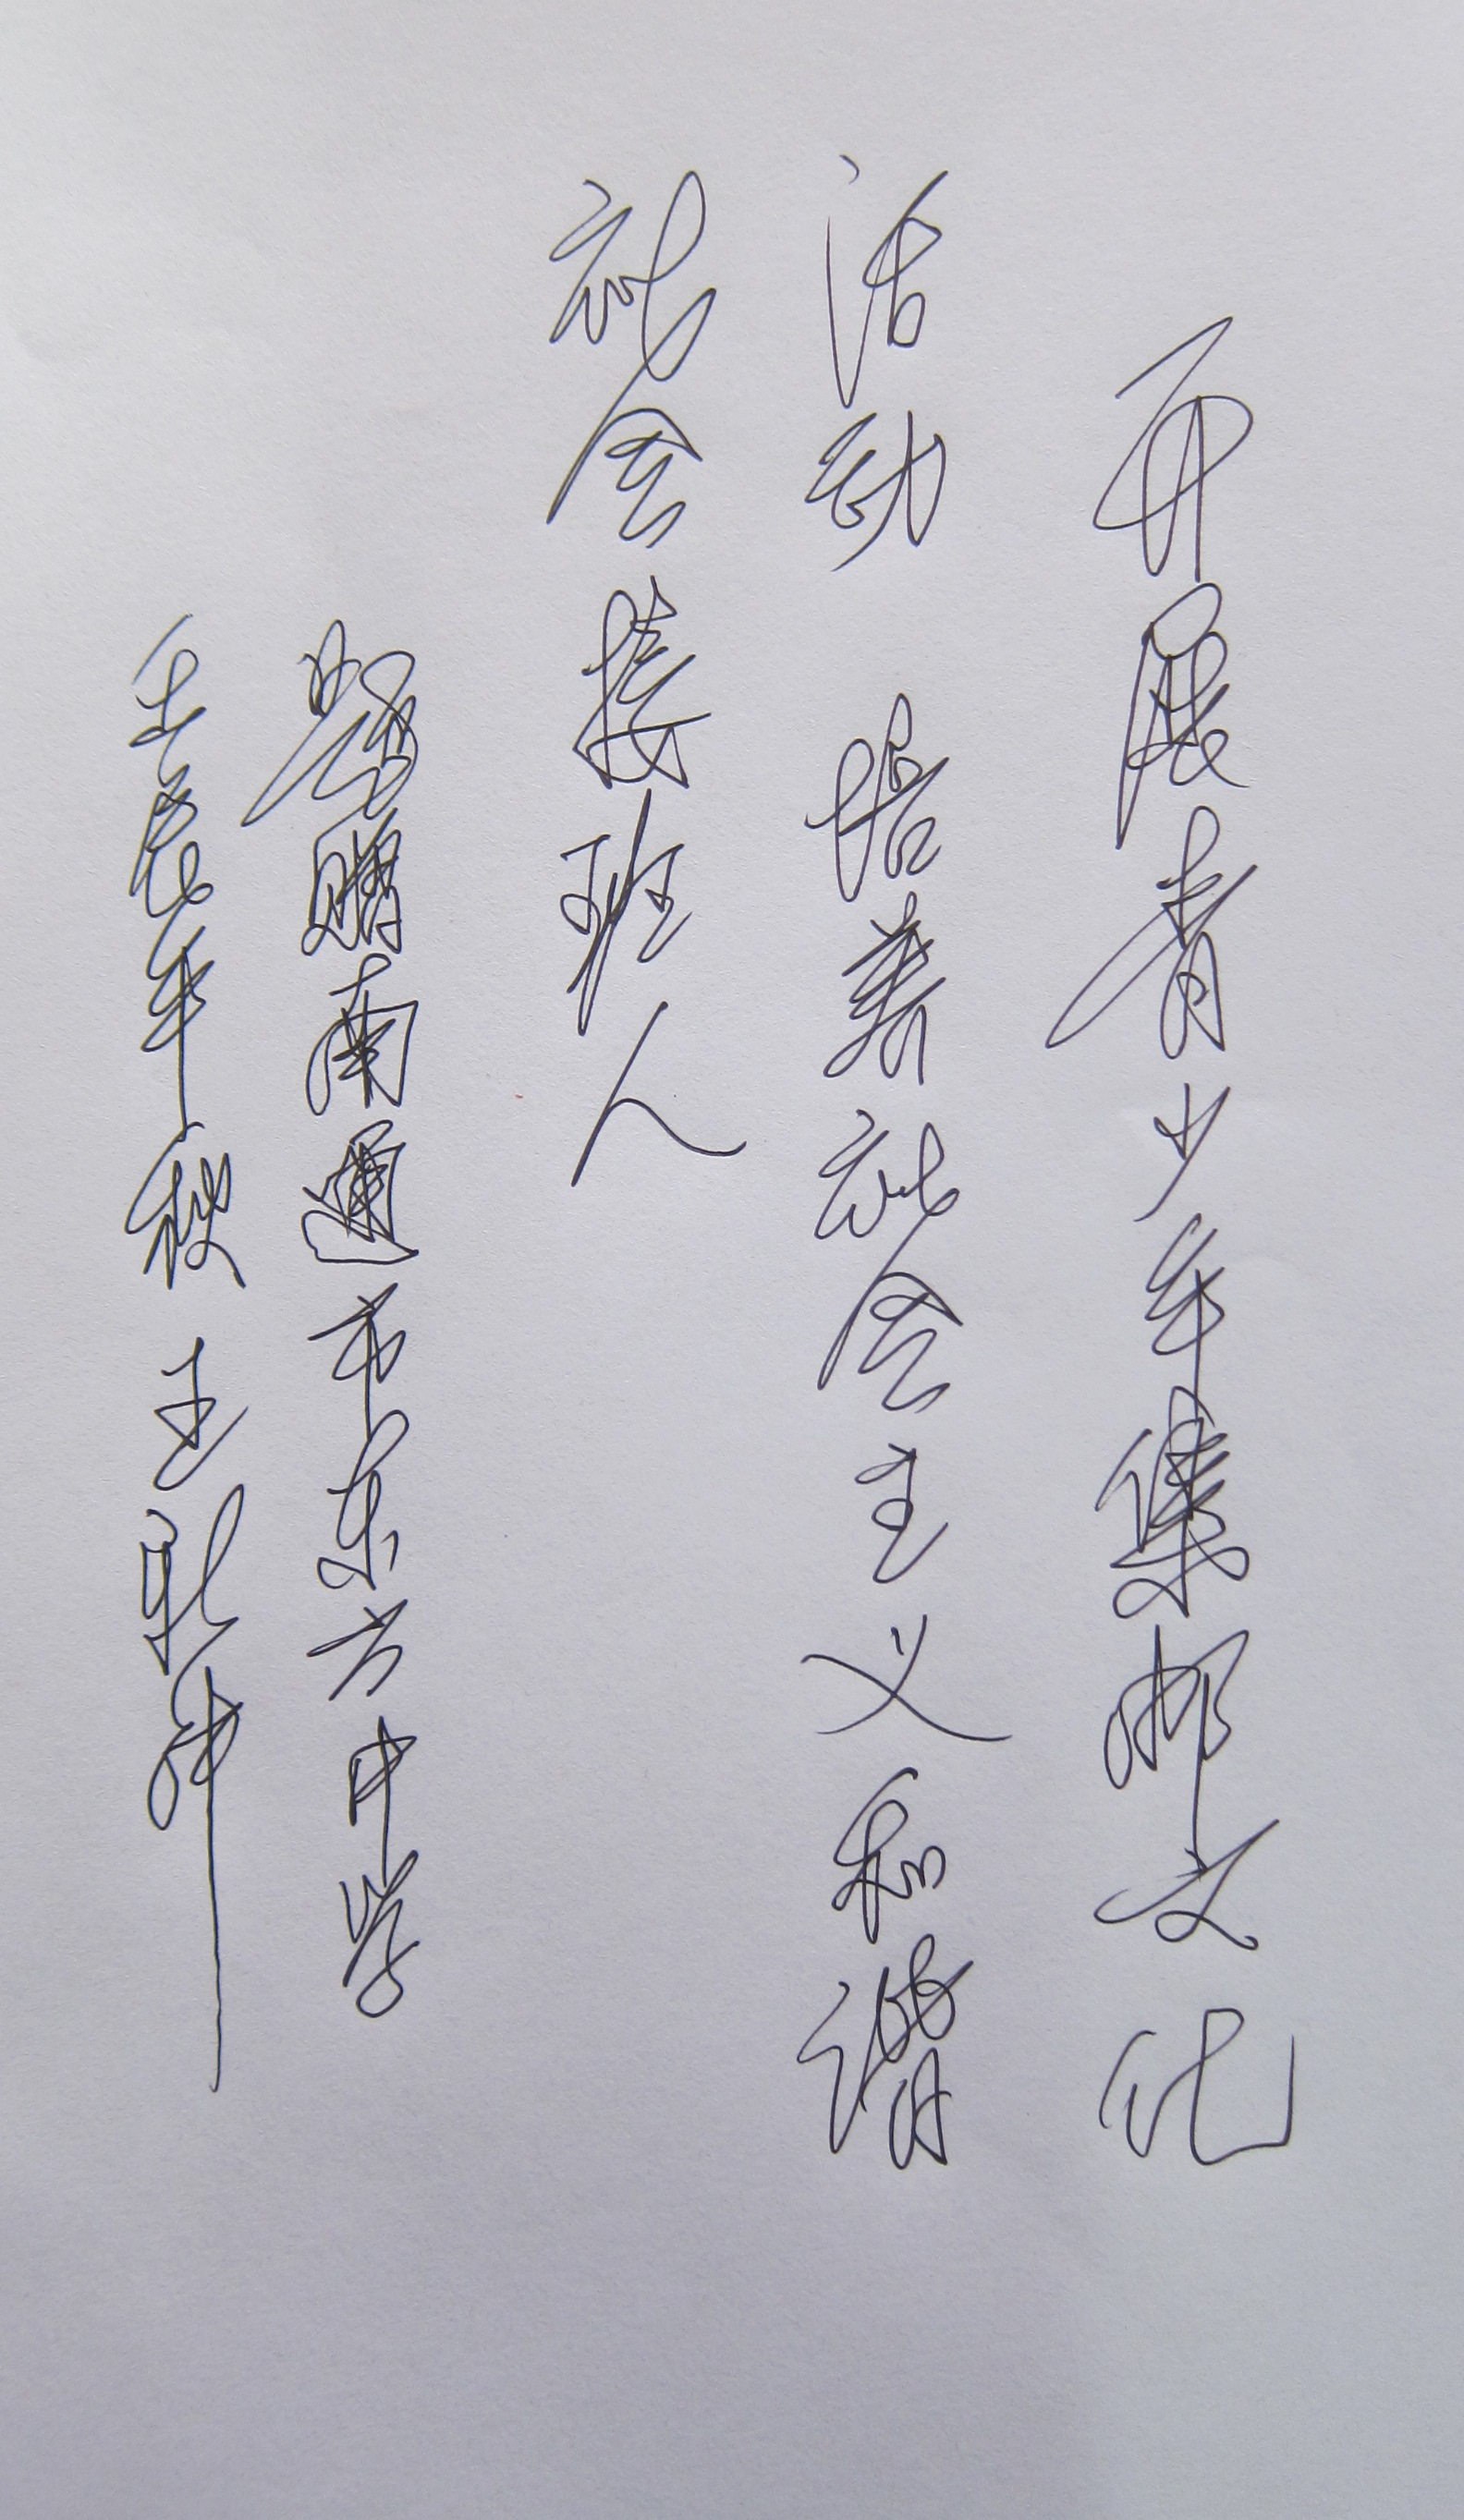 开展青少年集邮文化
活动 培养社会主义和谐
社会接班人
题赠南通市东方中学
壬辰年秋 王新中